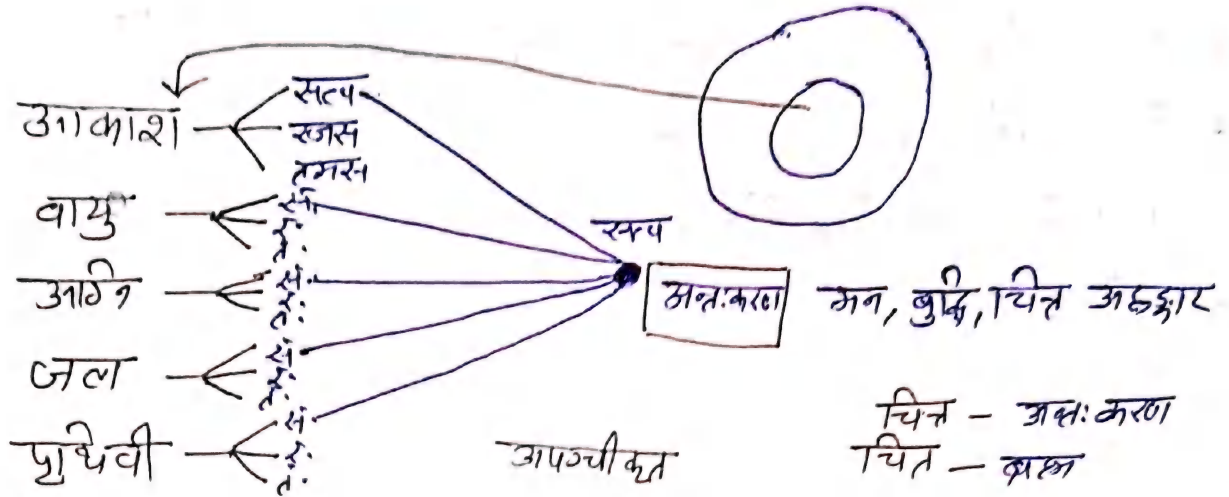 आकाश
सत्व
रजस
तमस
वायु
स.
र.
त.
अग्नि
स.
र.
त.
जल
स.
र.
त.
पृथिवी
स.
र.
त.
सत्व
अन्तःकरण
मन, बुद्धि, चित्त अहङ्कार
चित्त - अन्तःकरण
चित - ब्रह्म
अपञ्चीकृत